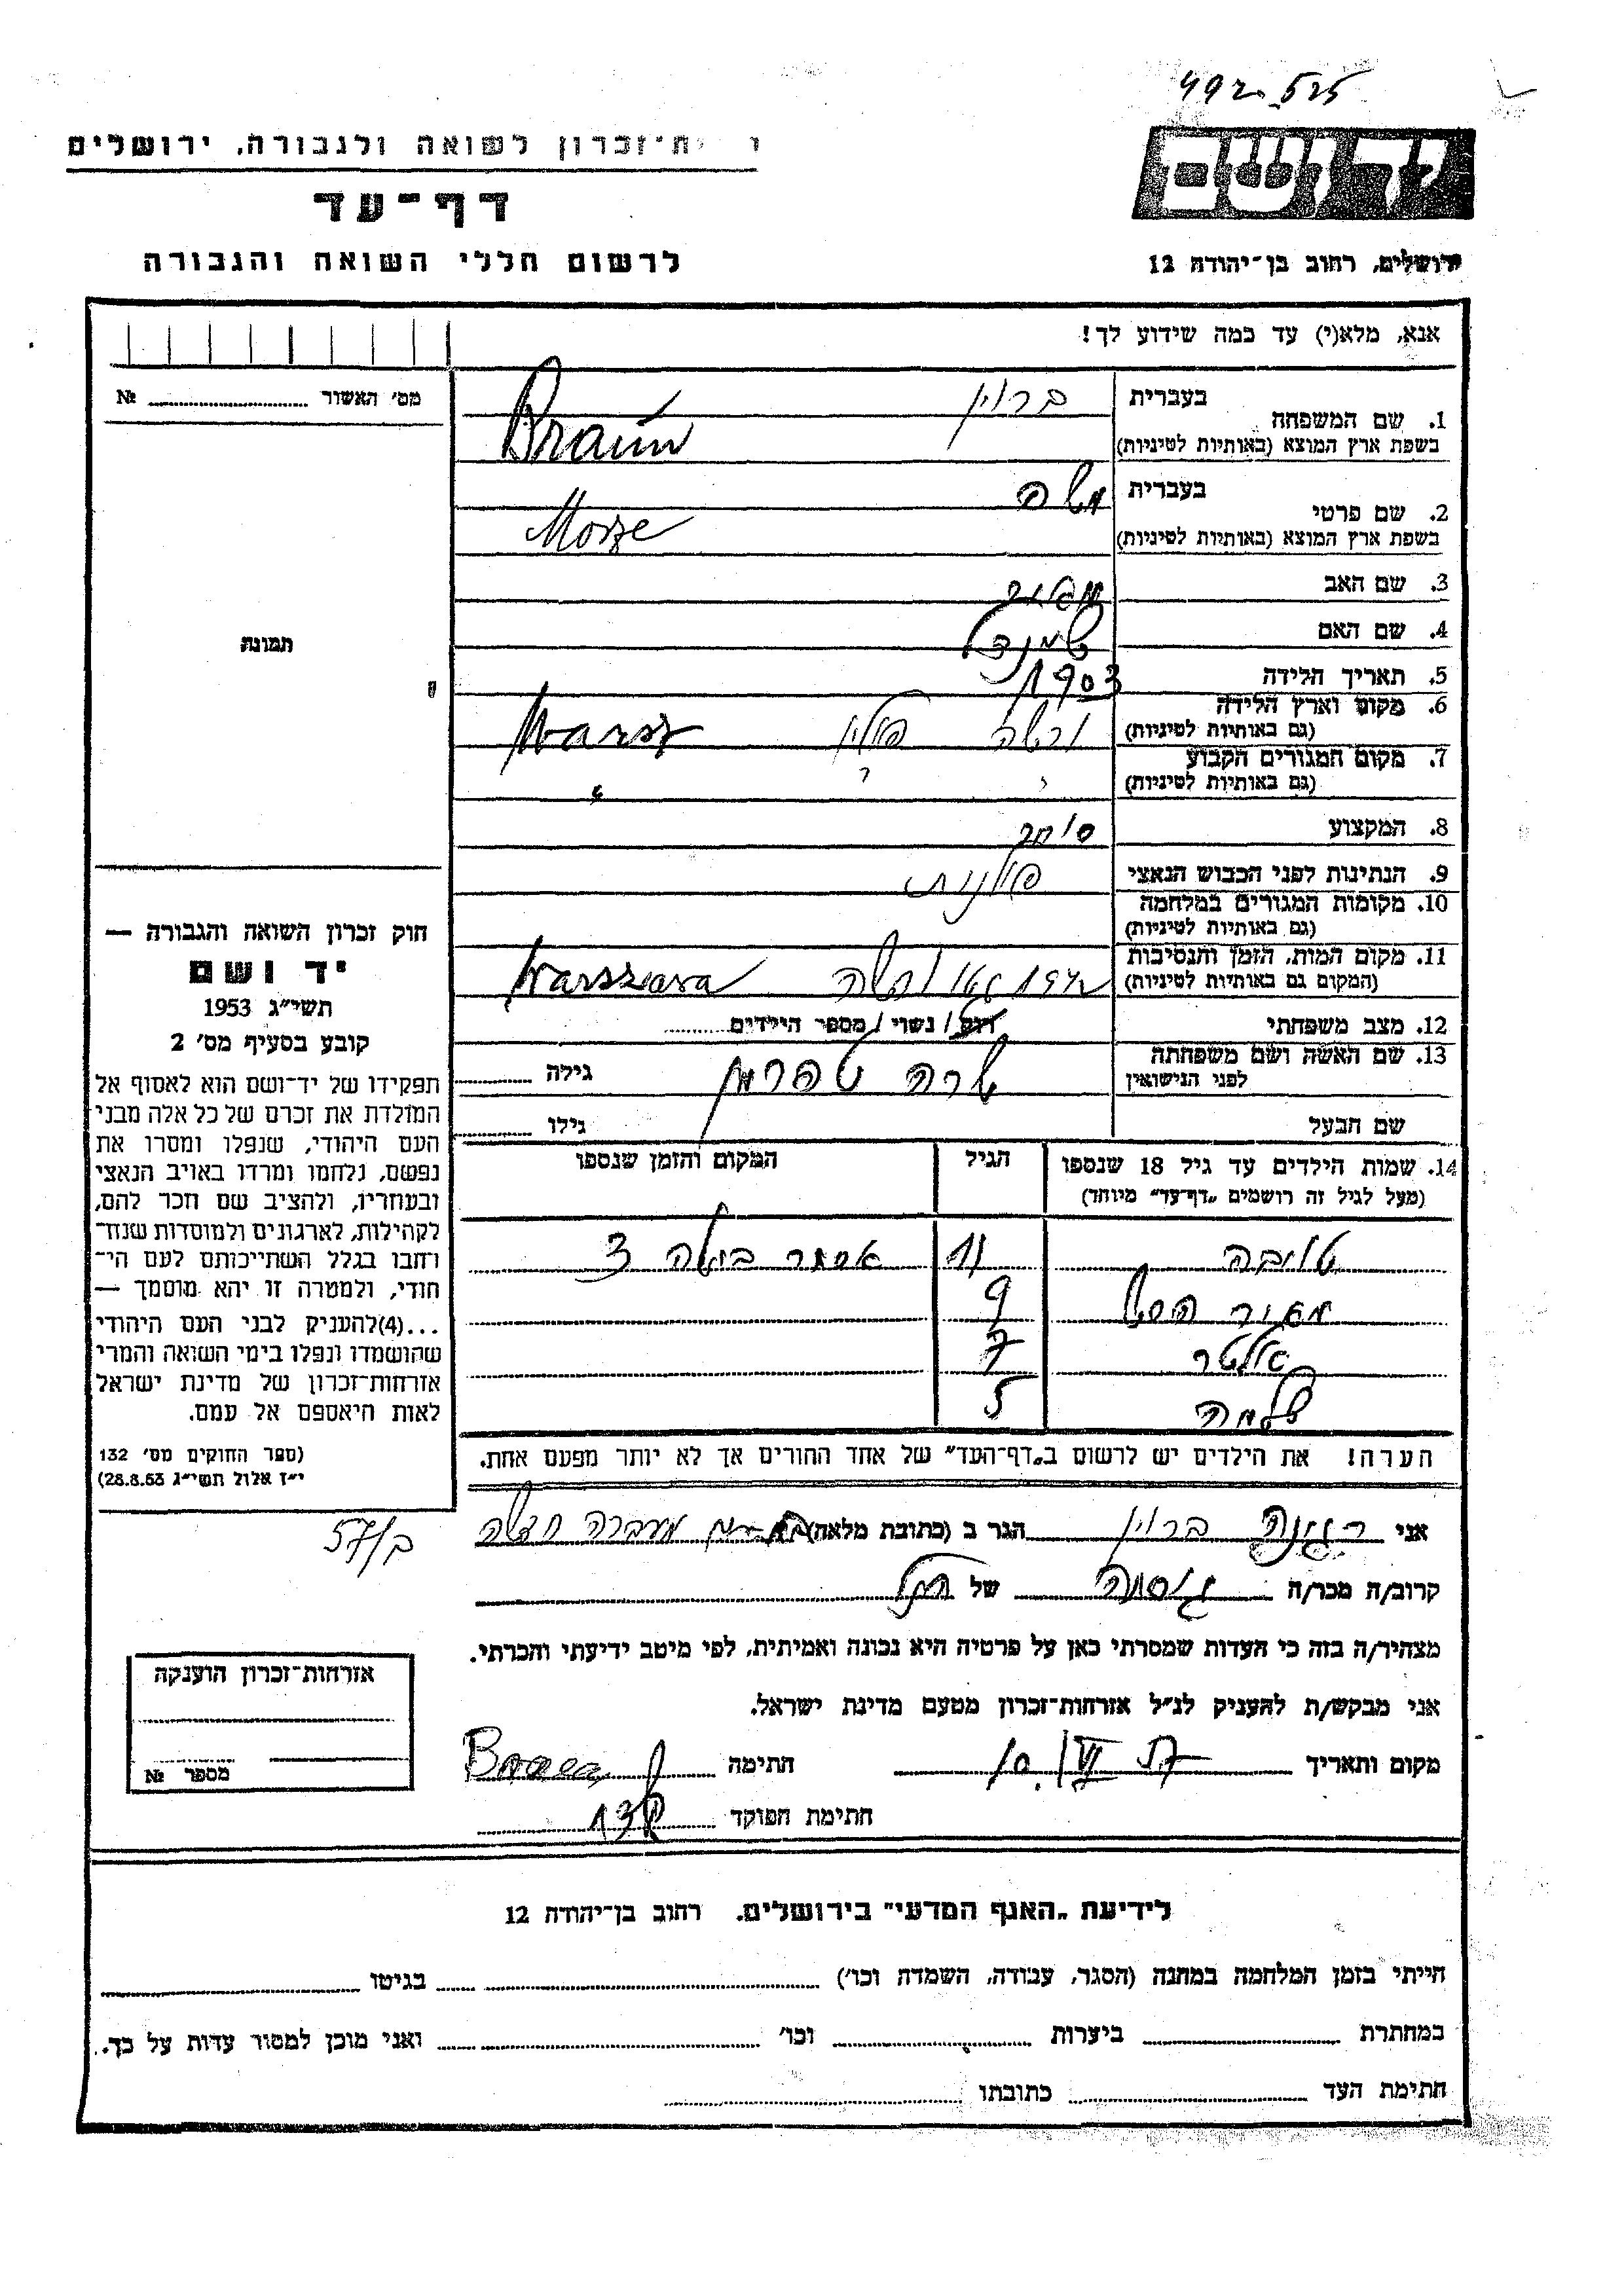 492 525
יד ושם
רשות־זכרון לשואה ולגבורה, ירושלים
דף־עד
לרשום חללי השואה והגבורה
ירושלים, רחוב בן־יהודה 12
אנא, מלא(י) עד כמה שידוע לך!
מס׳ האשור № 
1. שם המשפחה בעברית ברוין
בשפת ארץ המוצא (באותיות לטיניות) Braun
2. שם פרטי בעברית משה
בשפת ארץ המוצא (באותיות לטיניות) Morze
3. שם האב
4. שם האם
5. תאריך הלידה 1903
6. מקום וארץ הלידה ורשה פולין Warsz
(גם באותיות לטיניות)
7. מקום המגורים הקבוע " " "
(גם באותיות לטיניות)
8. המקצוע סוחר
9. הנתינות לפני הכבוש הנאצי פולנית
10. מקומות המגורים במלחמה
(גם באותיות לטיניות)
11. מקום המות, הזמן והנסיבות גטו ורשה Warszawa
(המקום גם באותיות לטיניות)
12. מצב משפחתי רווק / נשוי / מספר הילדים
13. שם האשה ושם משפחתה שרה גילה
לפני הנישואין
שם הבעל גילו
14. שמות הילדים עד גיל 18 שנספו הגיל המקום והזמן שנספו
(מעל לגיל זה רושמים „דף־עד” מיוחד)
טובה 11
מאיר 9
אלטר 7
שלמה 5
הערה! את הילדים יש לרשום ב„דף־העד” של אחד ההורים אך לא יותר מפעם אחת.
תמונה
חוק זכרון השואה והגבורה —
יד ושם
תשי״ג 1953
קובע בסעיף מס׳ 2
תפקידו של יד־ושם הוא לאסוף אל
המולדת את זכרם של כל אלה מבני
העם היהודי, שנפלו ומסרו את
נפשם, נלחמו ומרדו באויב הנאצי
ובעוזריו, ולהציב שם וזכר להם,
לקהילות, לארגונים ולמוסדות שנח־
רחבו בגלל השתייכותם לעם הי־
הודי, ולמטרה זו יהא מוסמך —
...(4)להעניק לבני העם היהודי
שהושמדו ונפלו בימי השואה והמרי
אזרחות־זכרון של מדינת ישראל
לאות היאספם אל עמם.
(ספר החוקים מס׳ 132
י״ז אלול תשי״ג 28.8.53)
אני רגינה ברוין הגר ב (כתובת מלאה) מעברה חדשה
ב/57
קרוב/ה מכר/ה גיסה של הנ״ל
מצהיר/ה בזה כי העדות שמסרתי כאן על פרטיה היא נכונה ואמיתית, לפי מיטב ידיעתי והכרתי.
אני מבקש/ת להעניק לנ״ל אזרחות־זכרון מטעם מדינת ישראל.
מקום ותאריך 10. VI חתימה
חתימת הפוקד
אזרחות־זכרון הוענקה
מספר №
לידיעת „האגף המדעי” בירושלים. רחוב בן־יהודה 12
הייתי בזמן המלחמה במחנה (הסגר, עבודה, השמדה וכו׳) בגיטו
במחתרת ביערות וכו׳ ואני מוכן למסור עדות על כך.
חתימת העד כתובתו